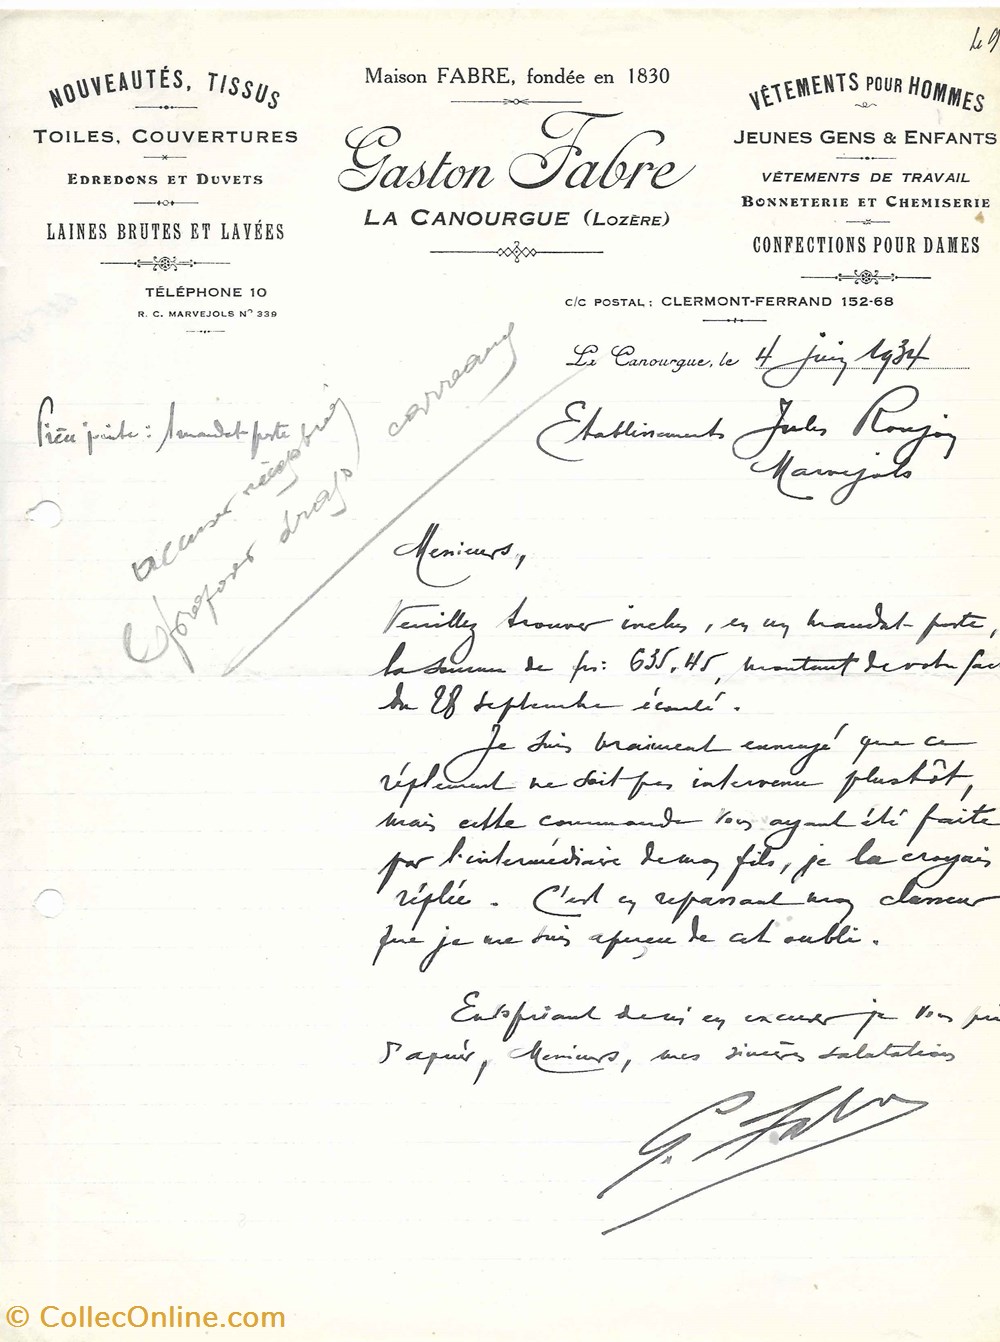 Le
NOUVEAUTÉS, TISSUS
TOILES, COUVERTURES
EDREDONS ET DUVETS
LAINES BRUTES ET LAVÉES
TÉLÉPHONE 10
R. C. MARVEJOLS Nº 339
Maison FABRE, fondée en 1830
Gaston Fabre
LA CANOURGUE (LOZÈRE)
VÊTEMENTS POUR HOMMES
JEUNES GENS & ENFANTS
VÊTEMENTS DE TRAVAIL
BONNETERIE ET CHEMISERIE
CONFECTIONS POUR DAMES
C/C POSTAL : CLERMONT-FERRAND 152-68
La Canourgue, le 4 juin 1934
Pièce jointe : 1 mandat-poste
accuser réception
proposer draps carreaux
Etablissements Jules Roujon
Marvejols
Messieurs,
Veuillez trouver inclus, en un mandat-poste,
la somme de frs: 635.45, montant de votre fac
du 28 septembre écoulé.
Je suis vraiment ennuyé que ce
réglement ne soit pas intervenu plustôt,
mais cette commande vous ayant été faite
par l'intermédiaire de mon fils, je la croyais
réglée. C'est en repassant mon classeur
que je me suis aperçu de cet oubli.
En vous priant de m'en excuser je vous pri
d'agréer, Messieurs, mes sincères salutations
G. Fabre
© CollecOnline.com